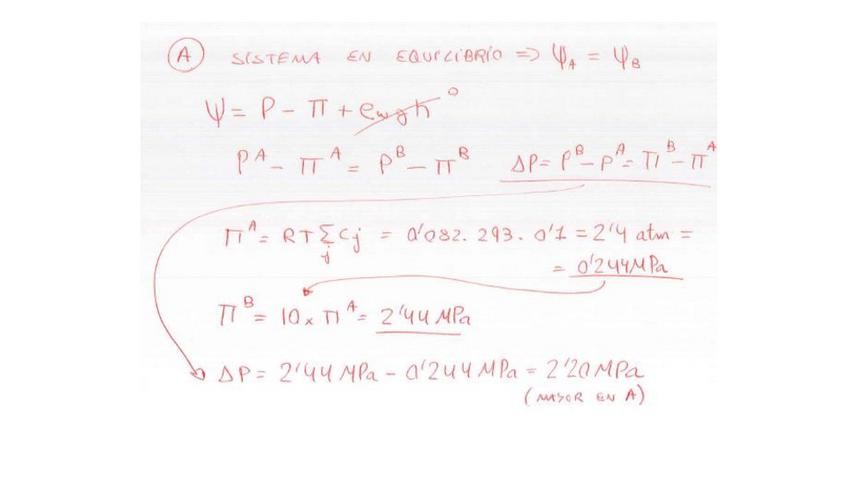 A SISTEMA EN EQUILIBRIO => ψA = ψB
ψ = P - π + ρwgh 0
P^A - π^A = P^B - π^B ΔP = P^B - P^A = π^B - π^A
π^A = RT Σj Cj = 0'082 . 293 . 0'1 = 2'4 atm =
= 0'244 MPa
π^B = 10 x π^A = 2'44 MPa
ΔP = 2'44 MPa - 0'244 MPa = 2'20 MPa
(MAYOR EN A)